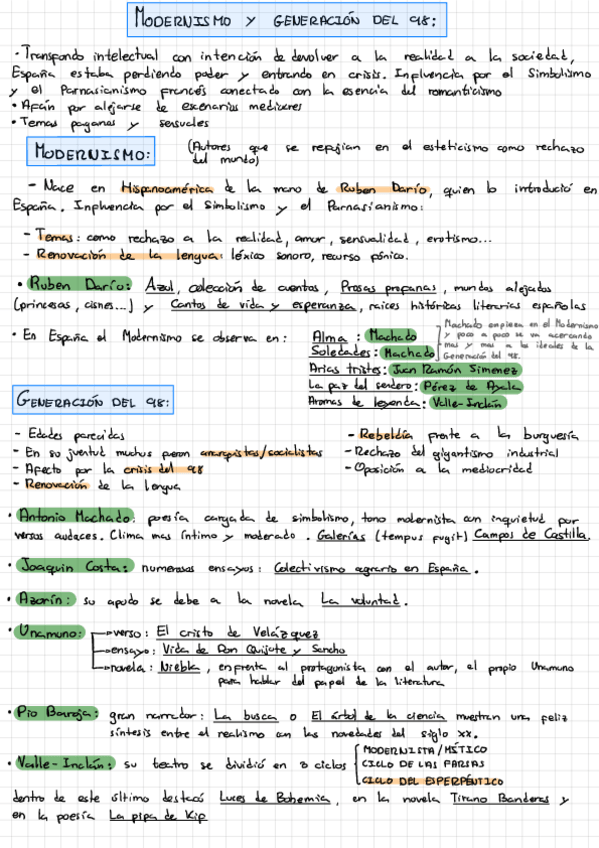 MODERNISMO Y GENERACIÓN DEL 98:
• Transfondo intelectual con intención de devolver a la realidad a la sociedad,
España estaba perdiendo poder y entrando en crisis. Influencia por el Simbolismo
y el Parnasianismo francés conectado con la esencia del romanticismo
• Afán por alejarse de escenarios mediocres
• Temas paganos y sensuales
MODERNISMO:
(Autores que se refugian en el esteticismo como rechazo
del mundo)
- Nace en Hispanoamérica de la mano de Ruben Darío, quien lo introdució en
España. Influencia por el Simbolismo y el Parnasianismo:
- Temas: como rechazo a la realidad, amor, sensualidad, erotismo...
- Renovación de la lengua: léxico sonoro, recurso fónico.
• Ruben Darío: Azul, colección de cuentos, Prosas profanas, mundos alejados
(princesas, cisnes...) y Cantos de vida y esperanza, raices históricas literarias españolas
• En España el Modernismo se observa en:
Alma: Machado
Soledades: Machado
Machado empieza en el Modernismo
y poco a poco se va acercando
mas y mas a los ideales de la
Generación del 98.
Arias tristes: Juan Ramón Simenez
La paz del sendero: Pérez de Ayala
Aromas de leyenda: Valle-Inclán
GENERACIÓN DEL 98:
- Edades parecidas
- En su juventud muchos fueron anarquistas/socialistas
- Afecto por la crisis del 98
- Renovación de la lengua
- Rebeldía frente a la burguesía
- Rechazo del gigantismo industrial
- Oposición a la mediocridad
• Antonio Machado: poesía cargada de simbolismo, tono modernista con inquietud por
versos audaces. Clima mas íntimo y moderado. Galerías (tempus fugit) Campos de Castilla.
• Joaquin Costa: numerosos ensayos: Colectivismo agrario en España.
• Azorín: su apodo se debe a la novela La voluntad.
• Unamuno:
verso: El cristo de Velázquez
ensayo: Vida de Don Quijote y Sancho
novela: Niebla, enfrenta al protagonista con el autor, el propio Unamuno
para hablar del papel de la literatura
• Pío Baroja: gran narrador: La busca o El árbol de la ciencia muestran una feliz
síntesis entre el realismo con las novedades del siglo XX.
• Valle-Inclán: su teatro se dividió en 3 ciclos
MODERNISTA/MÍTICO
CICLO DE LAS FARSAS
CICLO DEL ESPERPÉNTICO
dentro de este último destacó Luces de Bohemia, en la novela Tirano Banderas y
en la poesía La pipa de Kif